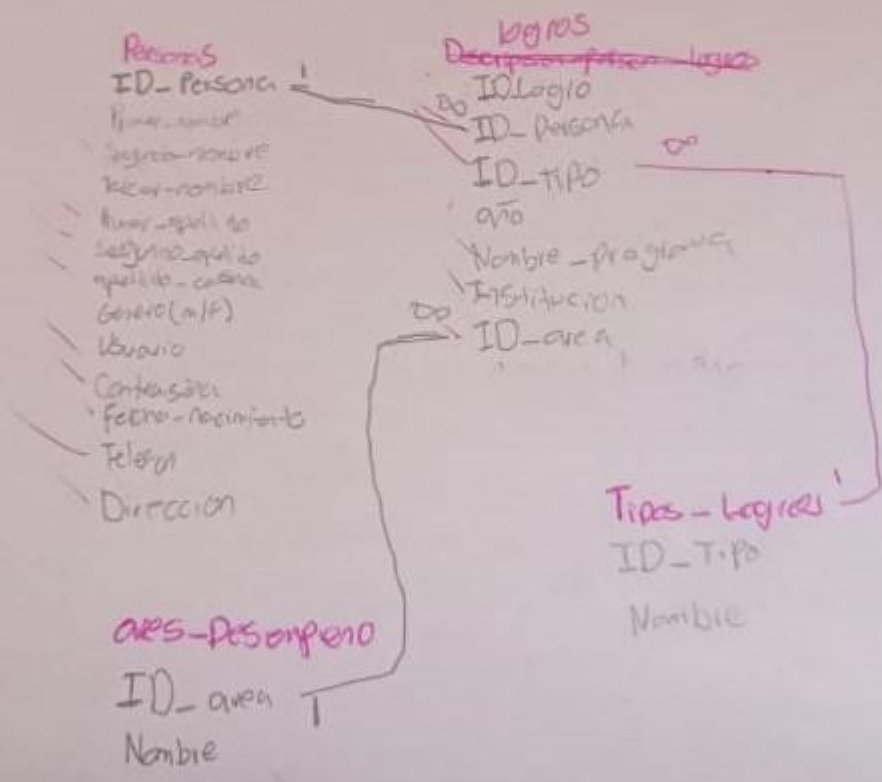 Personas
ID_Persona 1
Primer_nombre
Segundo_nombre
Tercer_nombre
Primer_apellido
Segundo_apellido
apellido_casada
Genero(m/f)
Usuario
Contraseña
Fecha_nacimiento
Telefon
Direccion
logros
IDLogro
∞ ID_Persona
ID_TIPO ∞
año
Nombre_programa
Institucion
∞ ID_area
Tipos_Logros 1
ID_Tipo
Nombre
ares_Desempeno
ID_area 1
Nombre